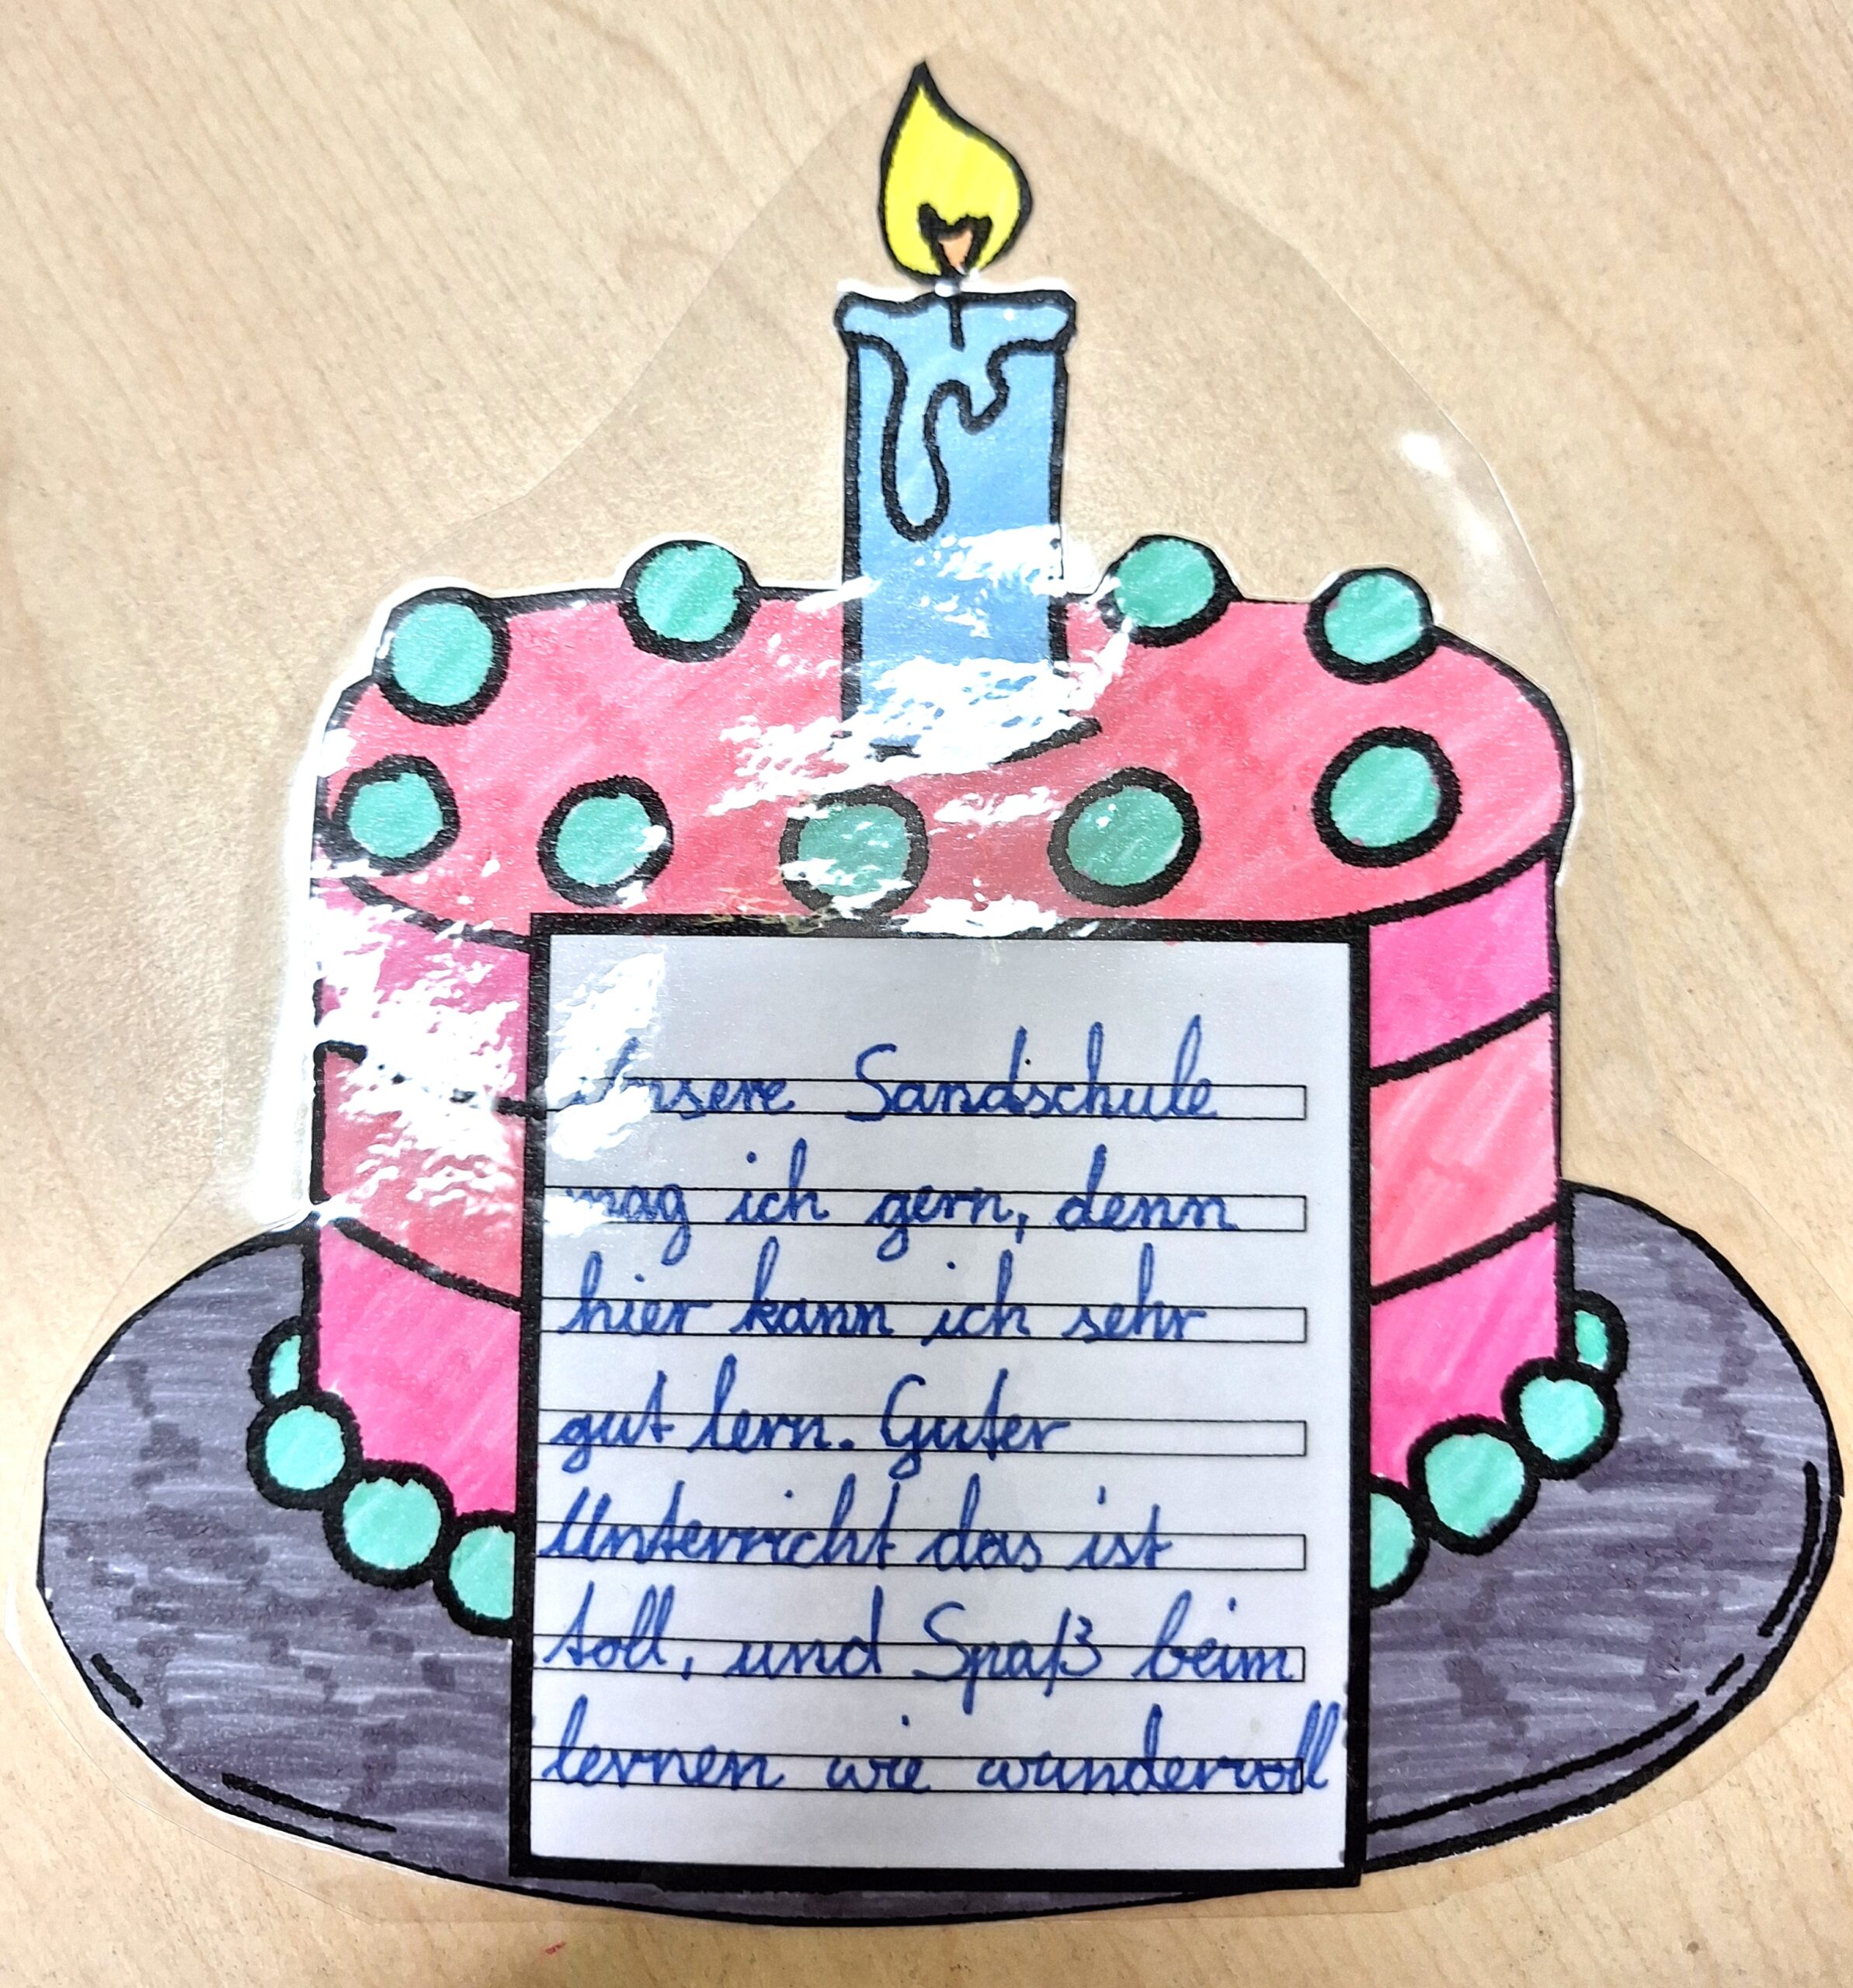 Unsere Sandschule
mag ich gern, denn
hier kann ich sehr
gut lern. Guter
Unterricht das ist
toll, und Spaß beim
lernen wie wundervoll